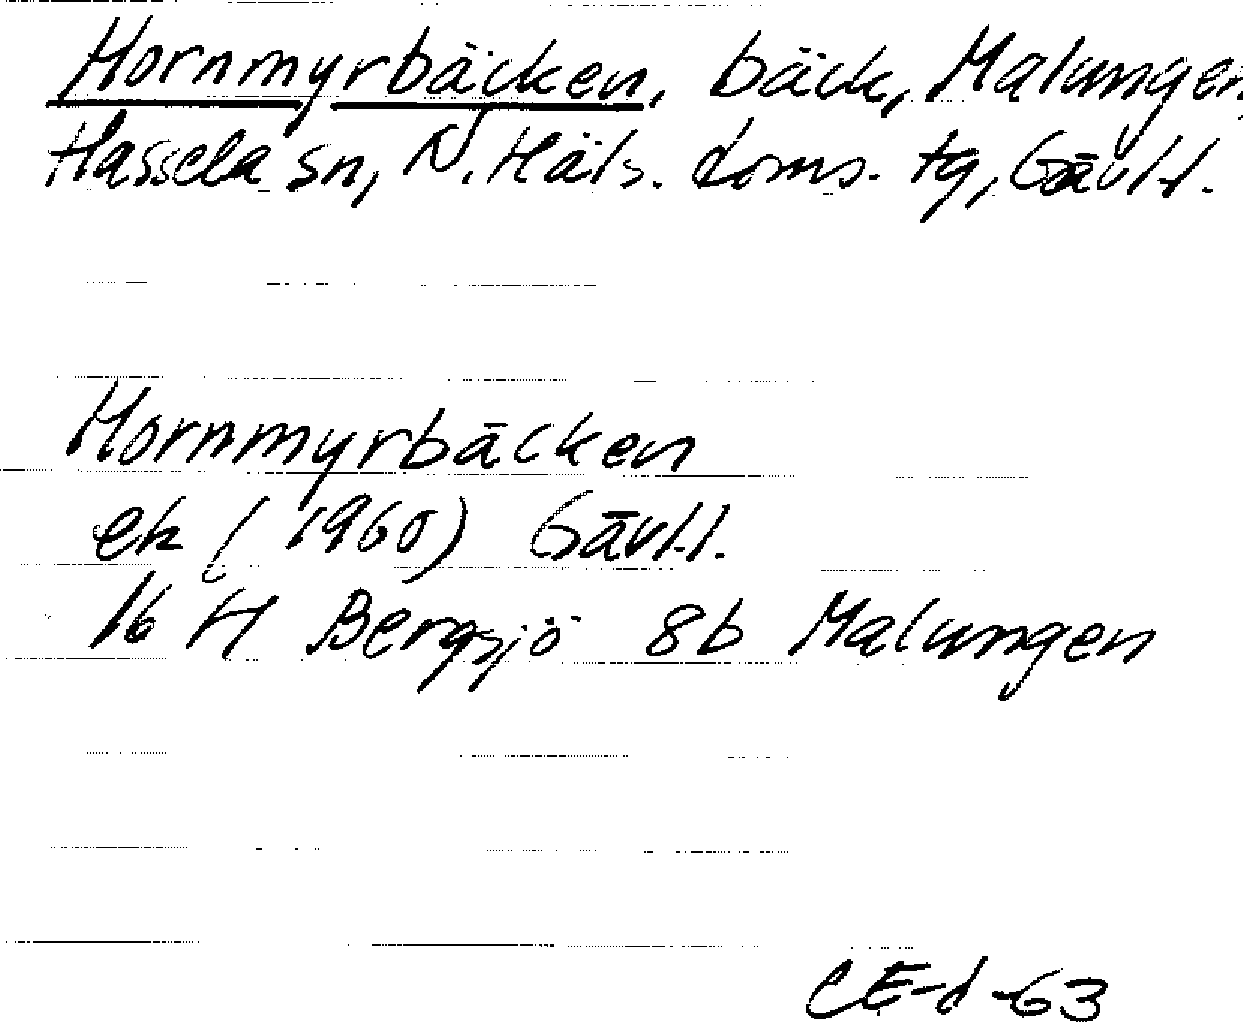 Hornmyrbäcken, bäck, Malungen,
Hassela sn, N. Häls. doms. tg, Gävl.l.
Hornmyrbäcken
ek (1960) Gävl.l.
16 H Bergsjö 8b Malungen
CE-d-63